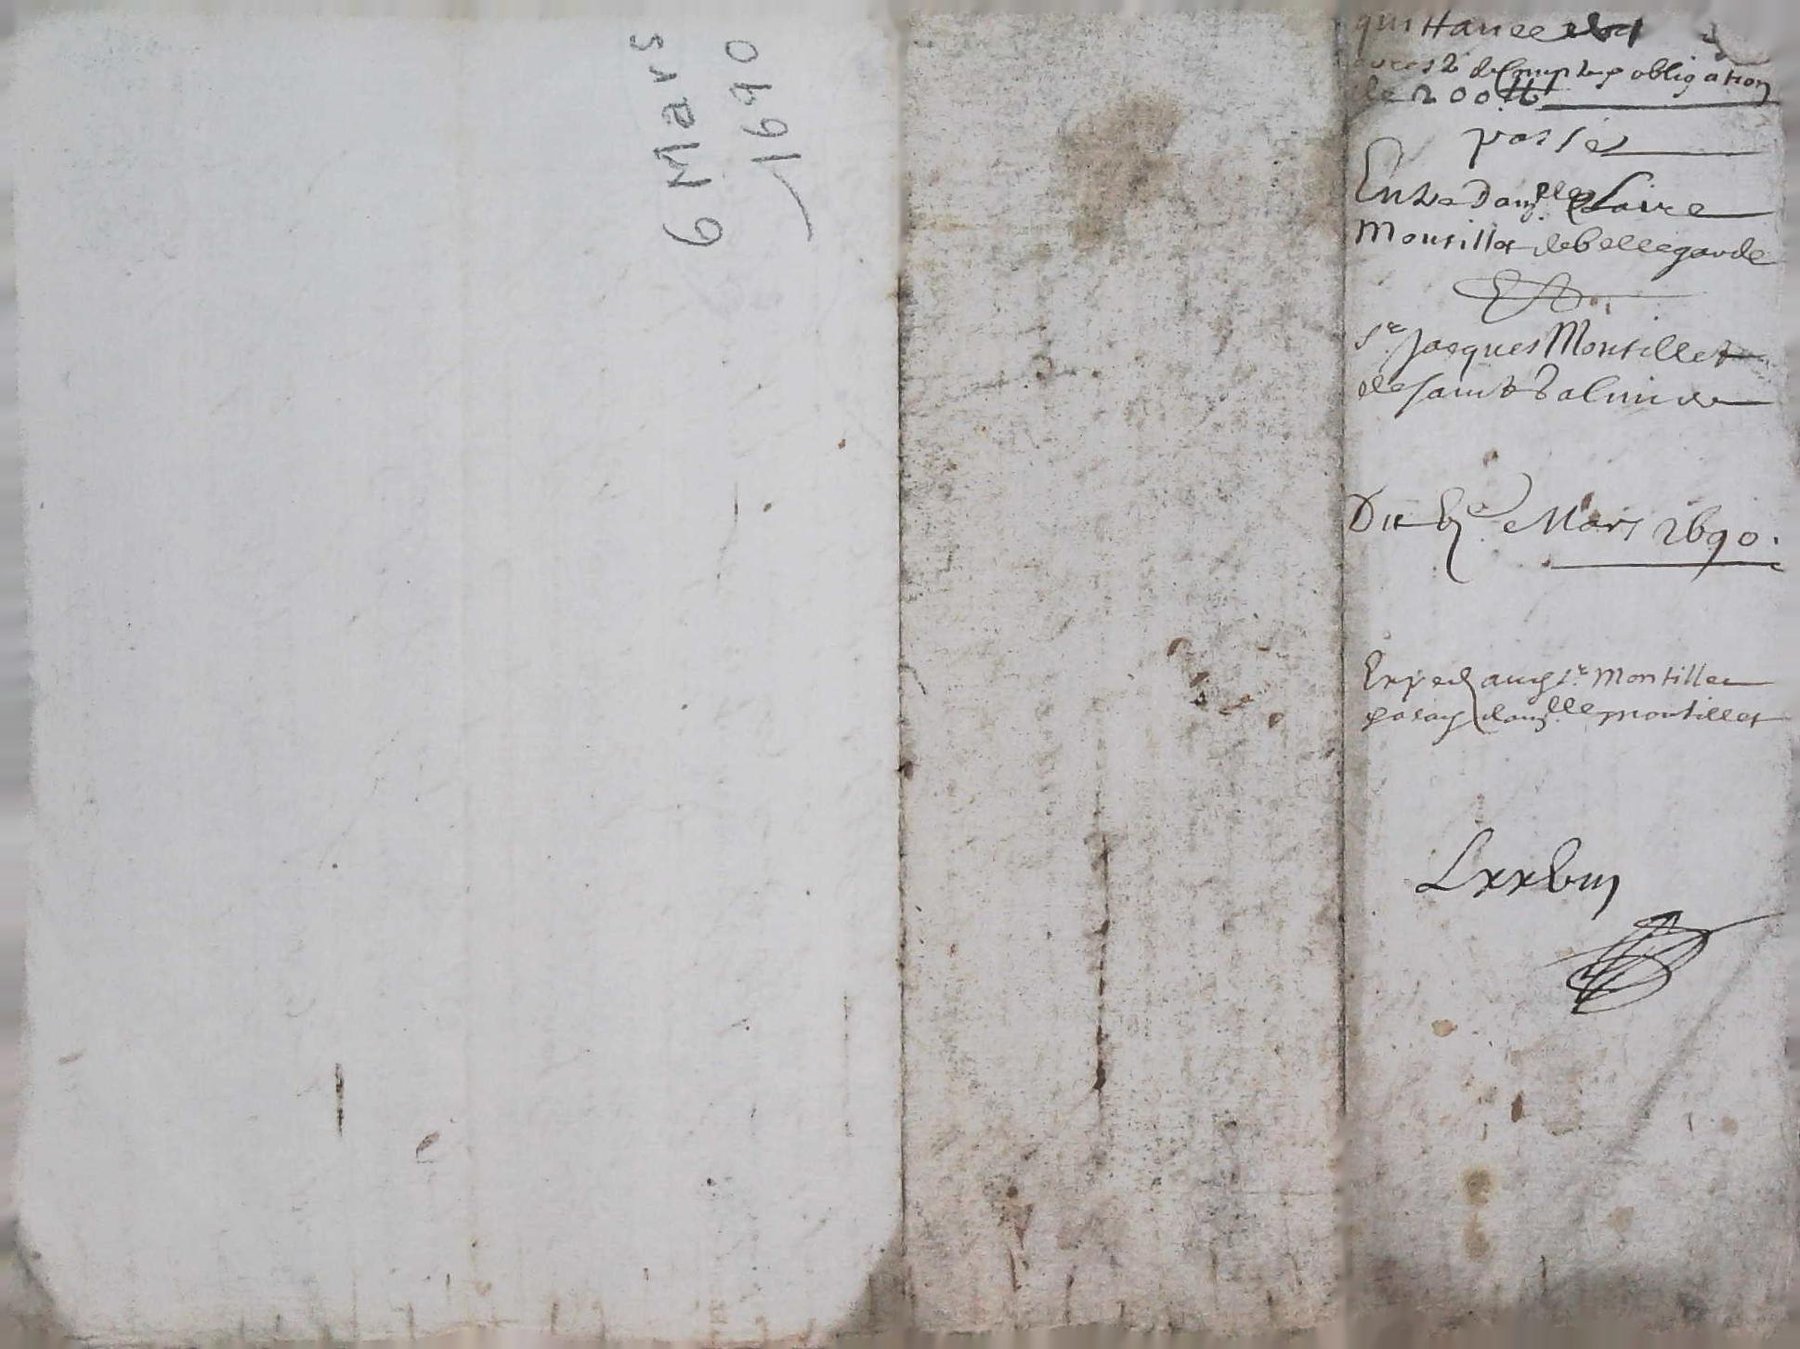 6 Mars
1690
quittance et
arest de Compte obligation
de 200 ₶
passé
Entre Dam.lle Claire
Montillet de bellegarde
Et
S.r Jacques Montillet
de saint Galmier
Du 6.e Mars 1690.
Exped au s.r Montillet
dam.lle montillet